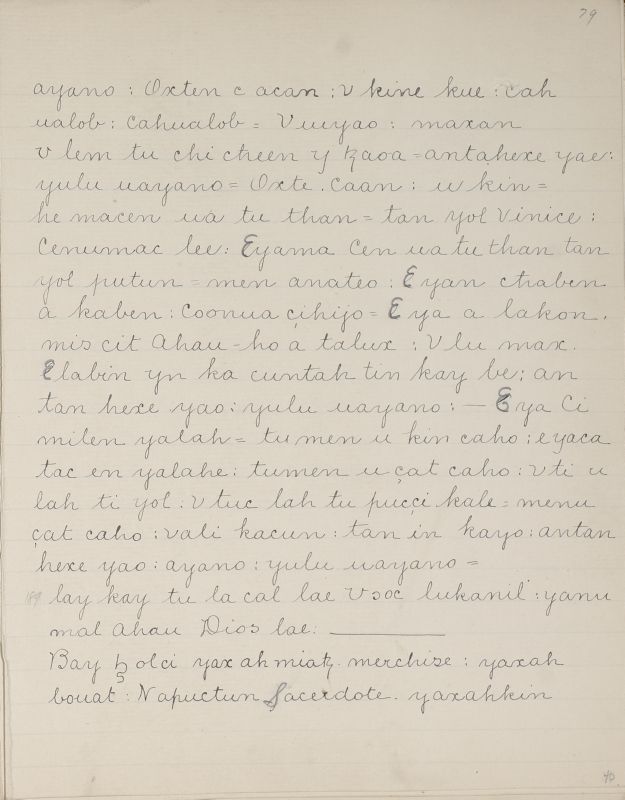 79
ayano : Oxten c acan : v kine kue : cah
ualob : cahualob = Vuuyao : maxan
v lem tu chi cheen y ꜩaoa = antahexe yae :
yulu uayano = Oxte . caan : u kin =
he macen uà tu than = tan yol vinice :
cenumac lee : Eyama cen ua tu than tan
yol putun = men anateo : Eyan chaben
à kaben : coonua çihijo = Eya a lakon .
mis cit Ahau - ho à talux : v lu max .
Elabin yn ka cuntah tin kay be ; an
tan hexe yao : yulu uayano : — Eya Ci
milen yalah = tumen u kin caho : eyaca
tac en yalahe : tumen u çat caho : v ti u
lah ti yol : v tuc lah tu pucçi kale = menu
çat caho : vali kacun : tan in kayo : antan
hexe yao : ayano : yulu uayano =
lay kay tu la cal lae Vꜩoc lukanil : yanu
mal Ahau Dios lae :
Bay holci yax ah miatꜩ . merchise : yaxah
bouat : Napuctun Sacerdote . yaxahkin
40